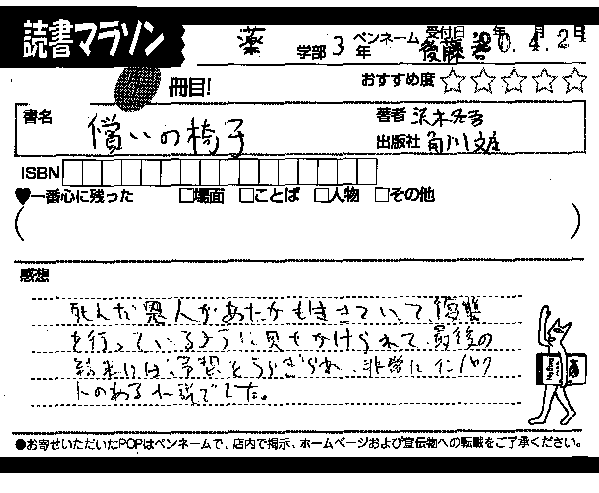 読書マラソン
薬 学部 3 年 ペンネーム 後藤
受付日 年 月 日 20.4.21
冊目!
おすすめ度 ☆☆☆☆☆
書名 償いの椅子
著者 沢木冬吾
出版社 角川文庫
ISBN
♥一番心に残った □場面 □ことば □人物 □その他
( )
感想
死んだ悪人があたかも生きていて、復讐
を行っているように見せかけられて、最後の
結末には、予想をうらぎられ、非常にインパク
トのある小説でした。
●お寄せいただいたPOPはペンネームで、店内で掲示、ホームページおよび宣伝物への転載をご了承ください。